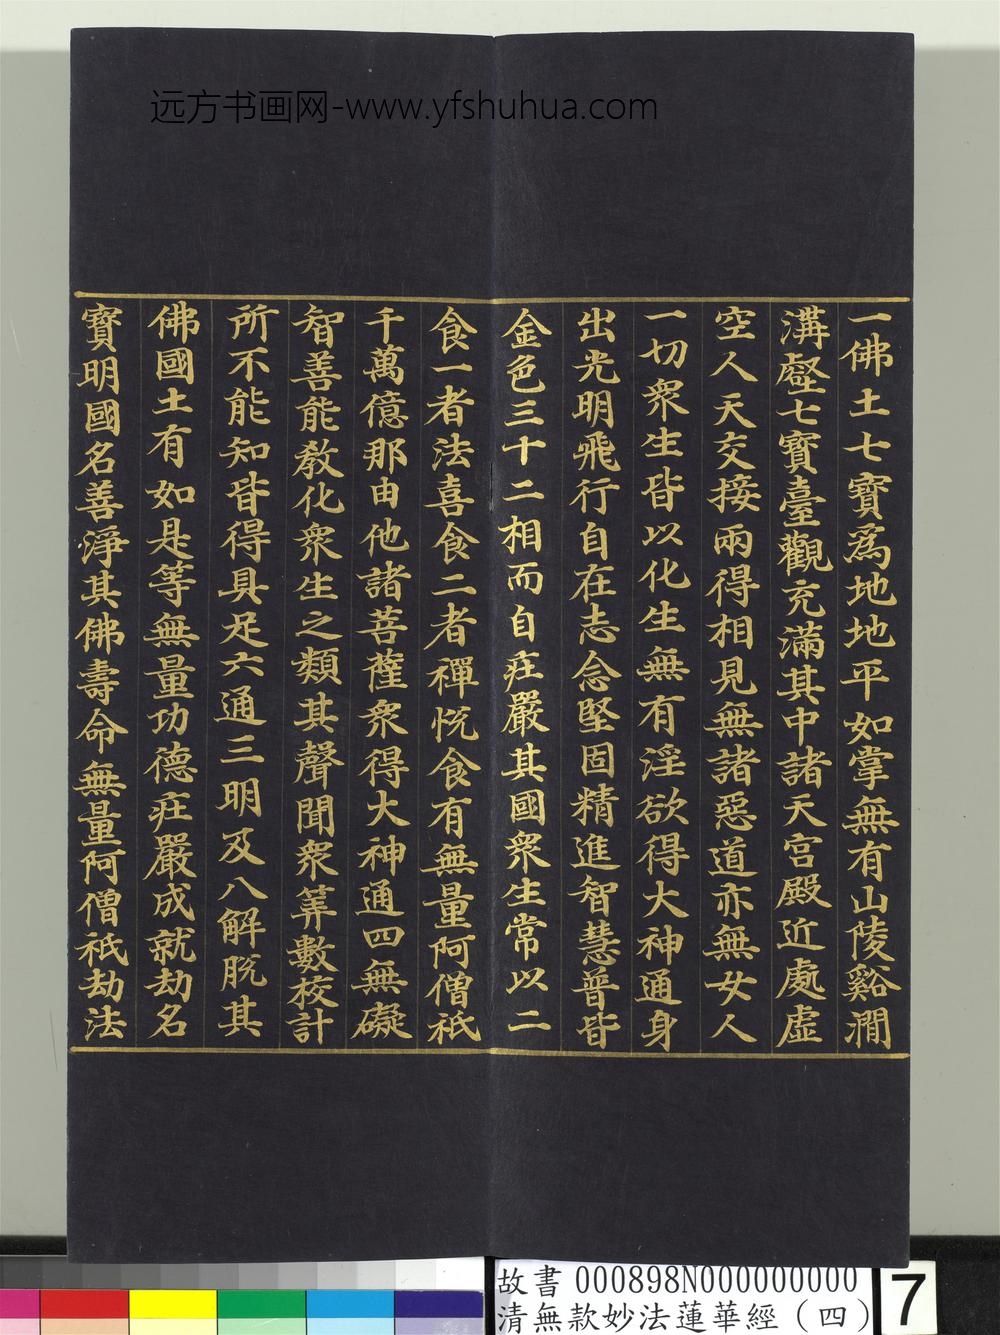 远方书画网-www.yfshuhua.com
一佛土七寶爲地地平如掌無有山陵谿澗
溝壑七寶臺觀充滿其中諸天宮殿近處虛
空人天交接兩得相見無諸惡道亦無女人
一切衆生皆以化生無有淫欲得大神通身
出光明飛行自在志念堅固精進智慧普皆
金色三十二相而自莊嚴其國衆生常以二
食一者法喜食二者禪悅食有無量阿僧祇
千萬億那由他諸菩薩衆得大神通四無礙
智善能教化衆生之類其聲聞衆筭數校計
所不能知皆得具足六通三明及八解脫其
佛國土有如是等無量功德莊嚴成就劫名
寶明國名善淨其佛壽命無量阿僧祇劫法
故書 000898N000000000
清無款妙法蓮華經(四)
7